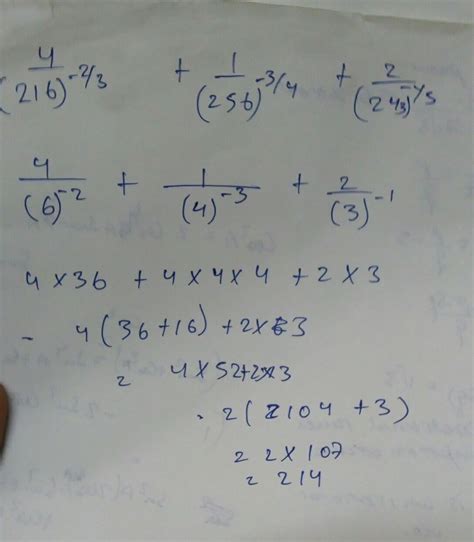 4/(216)^-2/3 + 1/(256)^-3/4 + 2/(243)^-1/5
4/(6)^-2 + 1/(4)^-3 + 2/(3)^-1
4 × 36 + 4 × 4 × 4 + 2 × 3
- 4(36+16) + 2×3
= 4×52+2×3
= 2(104 + 3)
= 2×107
= 214